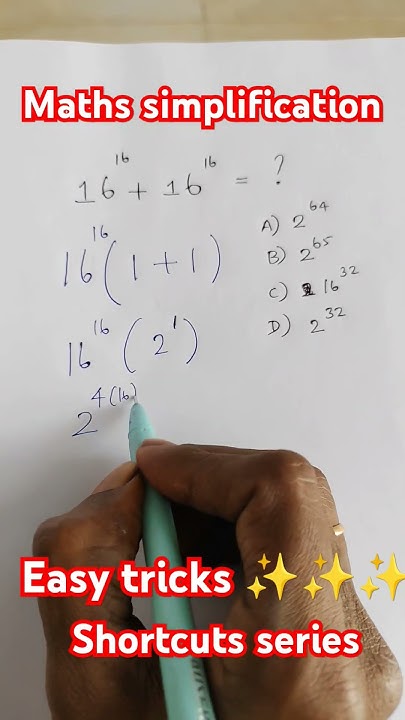 Maths simplification
16^16 + 16^16 = ?
A) 2^64
16^16 (1 + 1)
B) 2^65
C) 16^32
16^16 (2^1)
D) 2^32
2^4(16)
Easy tricks ✨✨✨
Shortcuts series